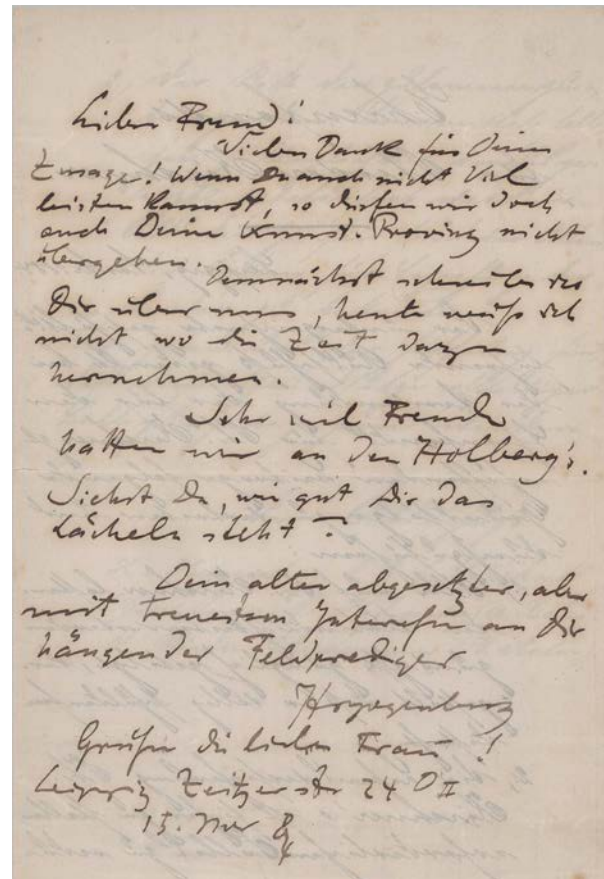 Lieber Freund!
Vielen Dank für Deine
Zusage! Wenn Du auch nicht viel
leisten kannst, so dürfen wir doch
auch Deine Kunst-Provinz nicht
übergehen.
Demnächst schreibe ich
Dir über uns, heute weiß ich
nicht wo die Zeit dazu
hernehmen.
Sehr viel Freude
hatten wir an den Holberg's.
Siehst Du, wie gut Dir das
Lächeln steht?
Dein alter abgesetzter, aber
mit treuestem Interesse an Dir
hängender Feldprediger
Herzogenberg
Grüße die liebe Frau!
Leipzig Zeitzerstr 24 D II
15. Nov 84